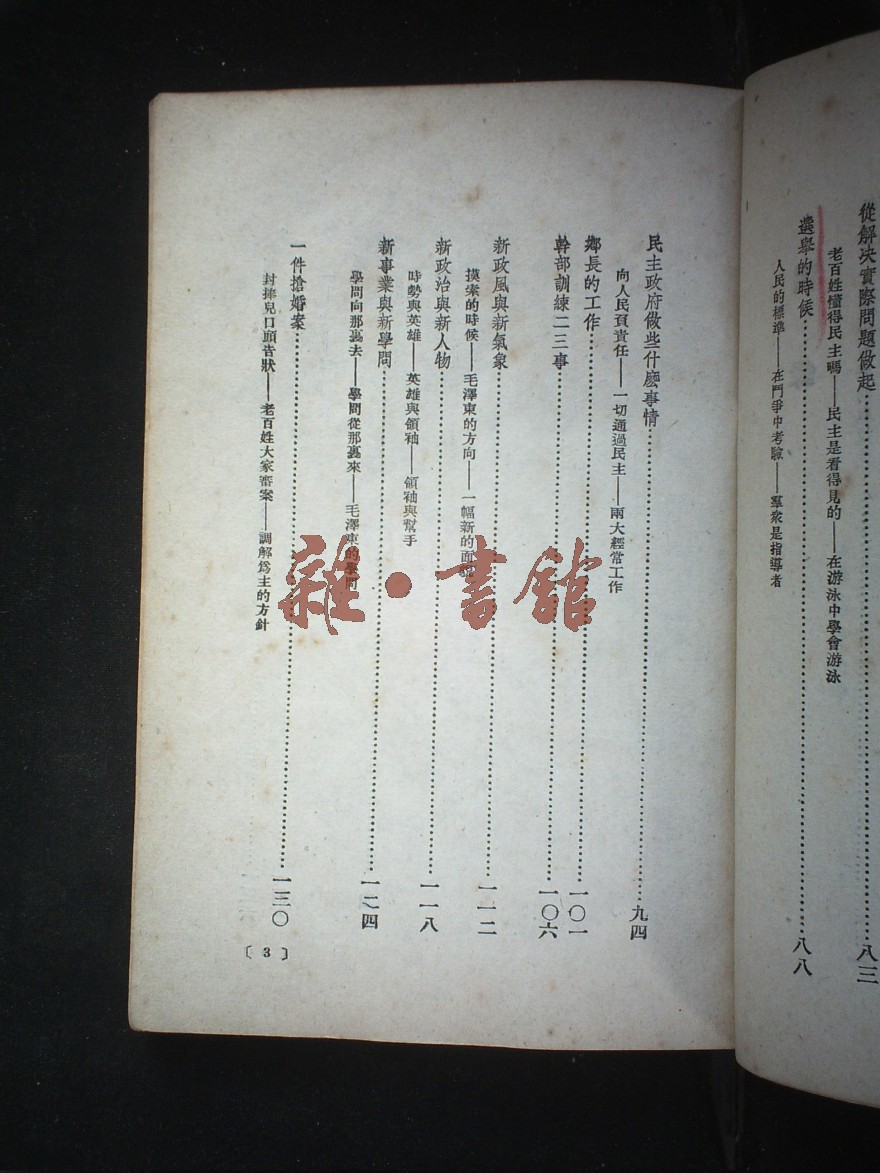 從解決實際問題做起……八三
老百姓懂得民主嗎——民主是看得見的——在游泳中學會游泳
選舉的時候……八八
人民的標準——在鬥爭中考驗——羣衆是指導者
民主政府做些什麽事情……九四
向人民負責任——一切通過民主——兩大經常工作
鄉長的工作……一〇一
幹部訓練二三事……一〇六
新政風與新氣象……一一二
摸索的時候——毛澤東的方向——一幅新的面貌
新政治與新人物……一一八
時勢與英雄——英雄與領袖——領袖與幫手
新事業與新學問……一二四
學問向那裏去——學問從那裏來——毛澤東的學問
一件搶婚案……一三〇
封捧兒口頭告狀——老百姓大家審案——調解爲主的方針
〔3〕
雜·書館